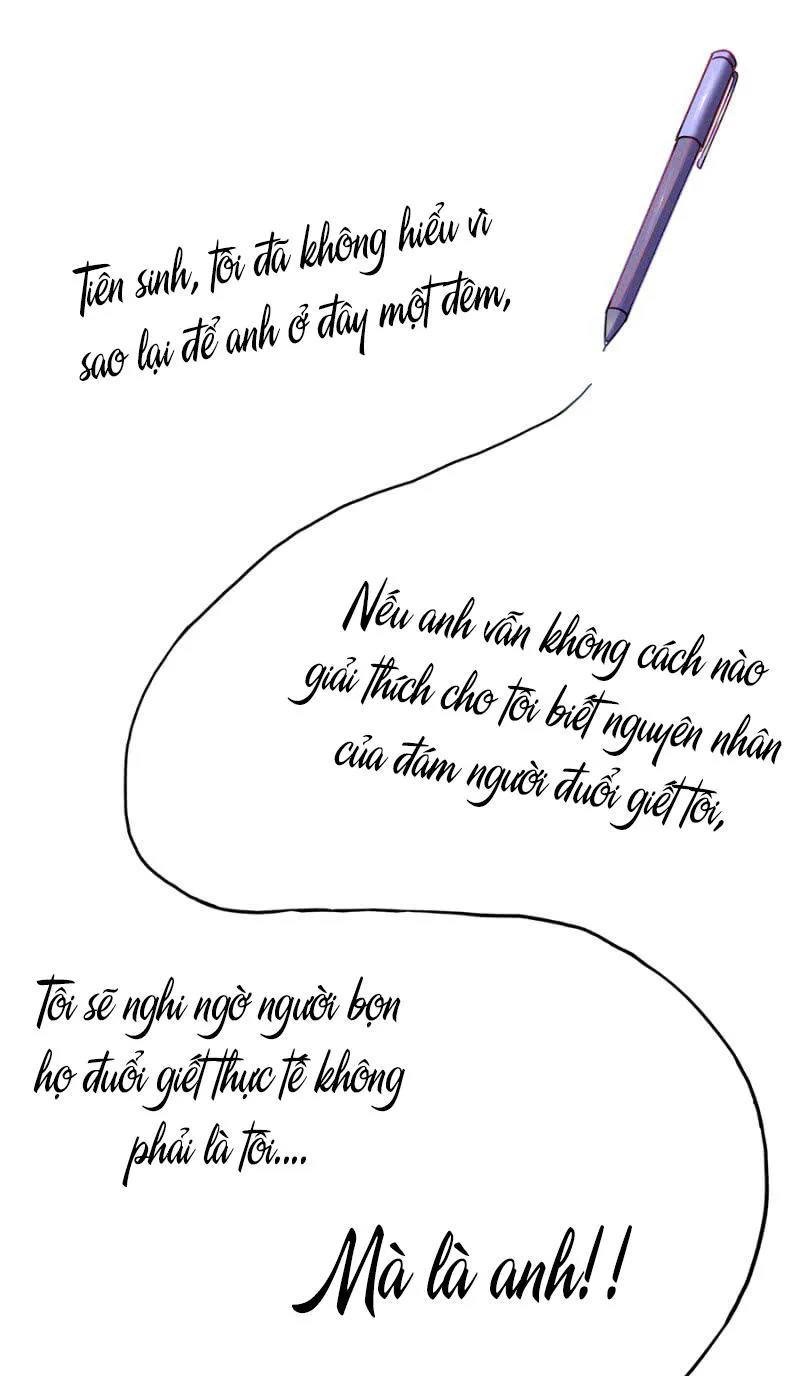 Tiên sinh, tôi đã không hiểu vì
sao lại để anh ở đây một đêm,
Nếu anh vẫn không cách nào
giải thích cho tôi biết nguyên nhân
của đám người đuổi giết tôi,
Tôi sẽ nghi ngờ người bọn
họ đuổi giết thực tế không
phải là tôi....
Mà là anh!!